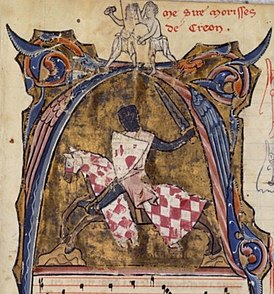 me sire morisses
de Creon.